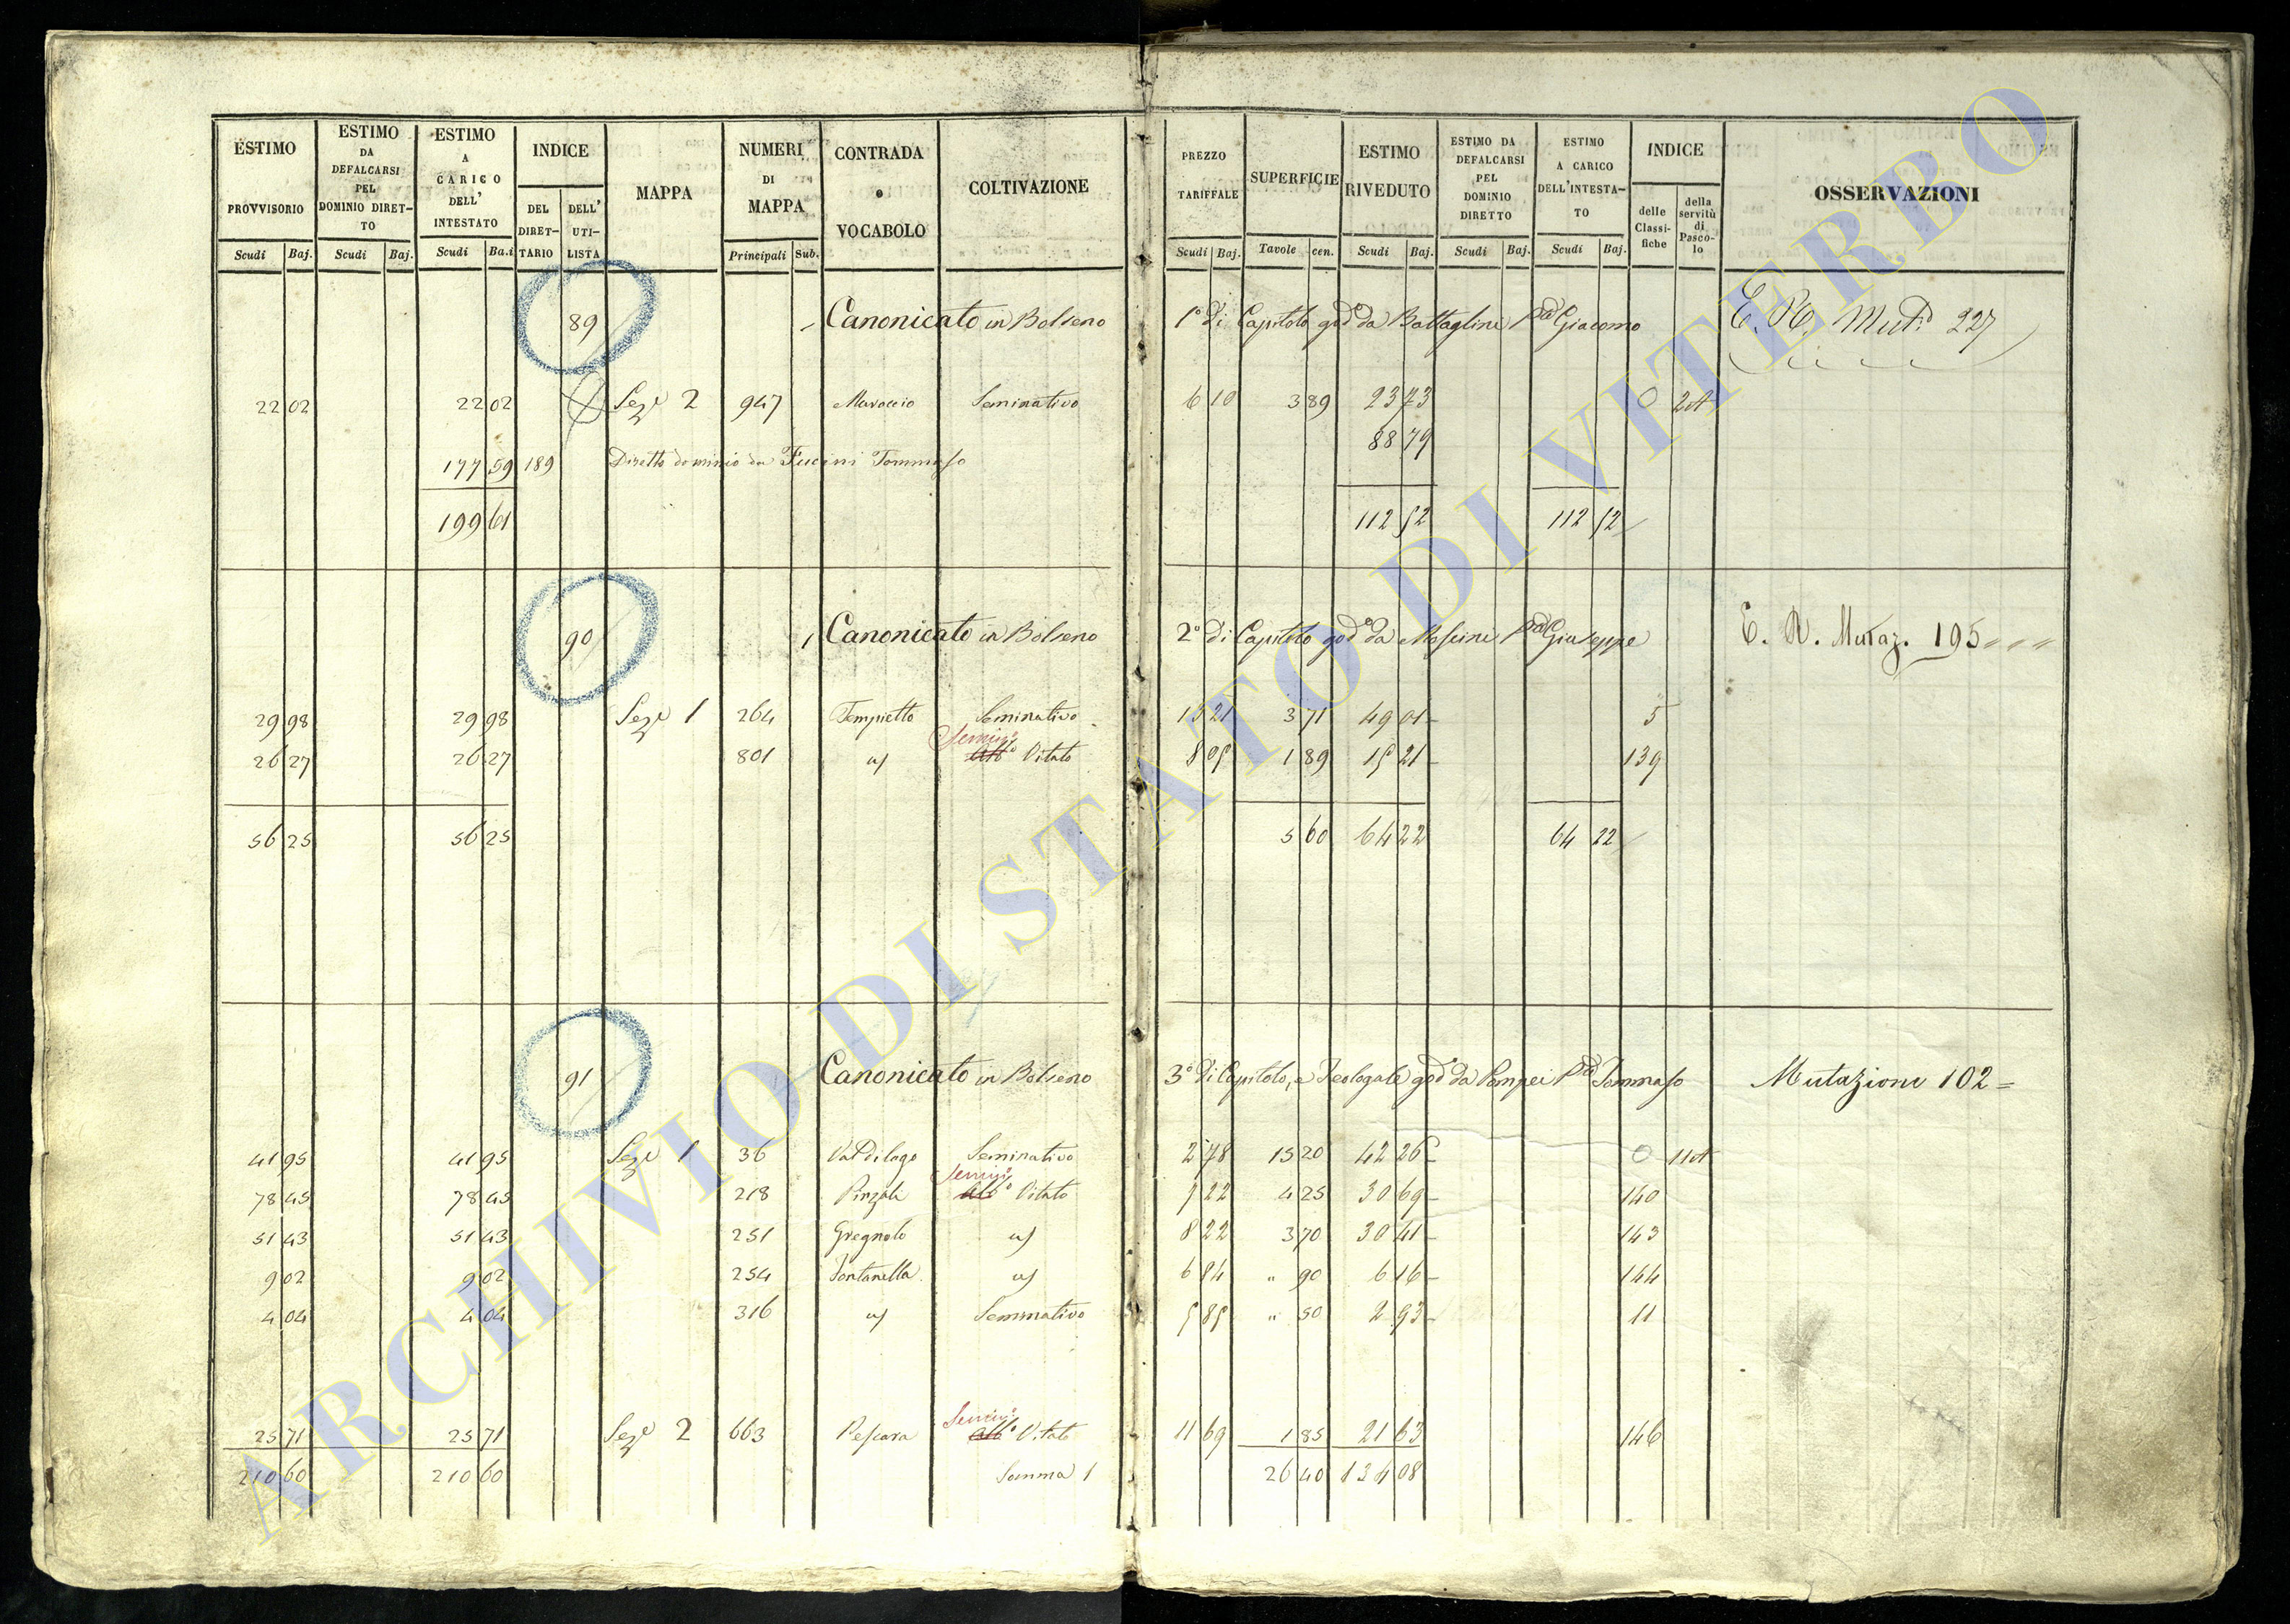 ESTIMO PROVVISORIO Scudi Baj.
ESTIMO DA DEFALCARSI PEL DOMINIO DIRET-TO Scudi Baj.
ESTIMO A CARICO DELL' INTESTATO Scudi Ba.i
INDICE DEL DIRET-TARIO DELL' UTI-LISTA
MAPPA
NUMERI DI MAPPA Principali Sub.
CONTRADA o VOCABOLO
COLTIVAZIONE
PREZZO TARIFFALE Scudi Baj.
SUPERFICIE Tavole cen.
ESTIMO RIVEDUTO Scudi Baj.
ESTIMO DA DEFALCARSI PEL DOMINIO DIRETTO Scudi Baj.
ESTIMO A CARICO DELL'INTESTA-TO Scudi Baj.
INDICE delle Classi-fiche della servitù di Pasco-lo
OSSERVAZIONI
89 Canonicato in Bolseno 1° di Capitolo god° da Battaglini Giacomo 227
22 02 22 02 Sez.e 2 947 Seminativo 6 10 3 89 23 73 0
88 79
177 59 189 Diretto dominio da Fucini Tommaso
199 61 112 52 112 52
90 Canonicato in Bolseno 2° di Capitolo god° da Giuseppe E. R. Mutaz. 195
29 98 29 98 Sez.e 1 264 Tempietto Seminativo 13 21 3 71 49 01 5
26 27 26 27 801 Semin° Vitato 8 05 1 89 15 21 139
56 25 56 25 5 60 64 22 64 22
91 Canonicato in Bolseno 3° di Capitolo, e Teologale god° da Pompei Tommaso Mutazione 102
41 95 41 95 Sez.e 1 36 Val di lago Seminativo 2 78 15 20 42 26 0
78 45 78 45 218 Semin° Vitato 7 22 4 25 30 69 140
51 43 51 43 251 Gregnolo 8 22 3 70 30 41 143
9 02 9 02 254 Fontanella 6 84 " 90 6 16 144
4 04 4 04 316 Seminativo 5 85 " 50 2 93 11
25 71 25 71 Sez.e 2 663 Pescara Semin° Vitato 11 69 1 85 21 63 146
210 60 210 60 Somma 1 26 40 134 08
ARCHIVIO DI STATO DI VITERBO